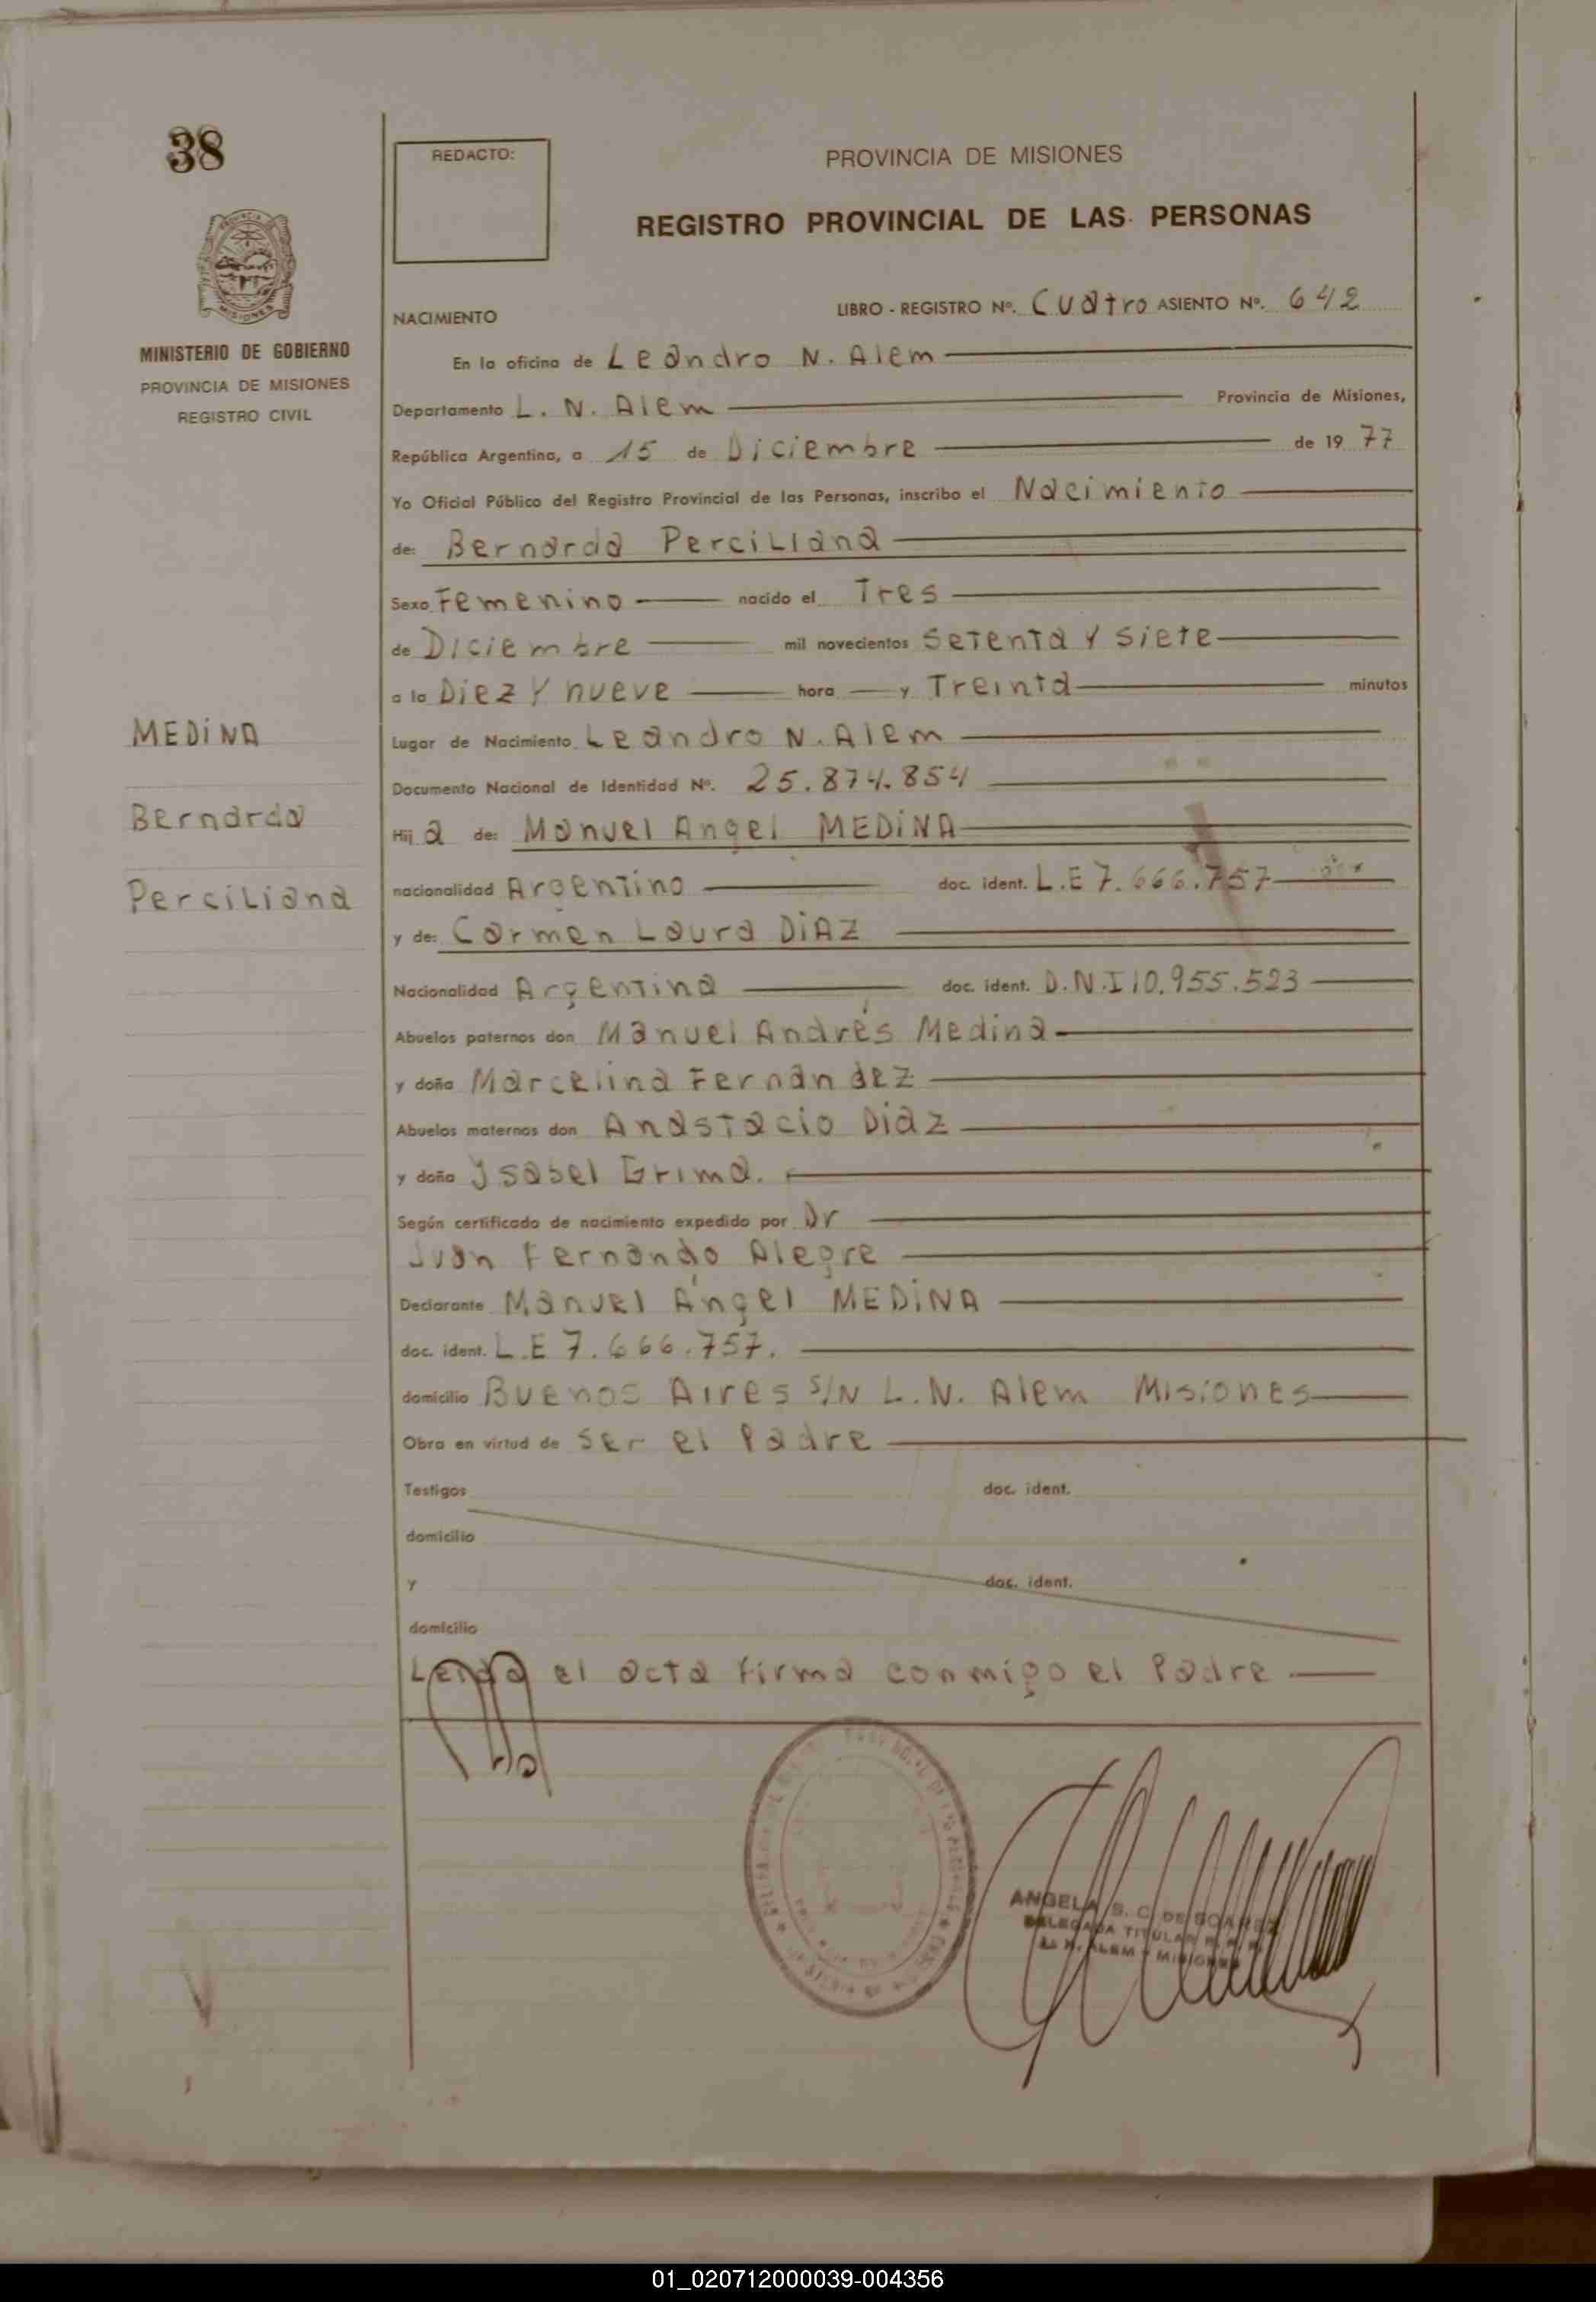 38
REDACTO:
PROVINCIA DE MISIONES
REGISTRO PROVINCIAL DE LAS PERSONAS
MISIONES
MINISTERIO DE GOBIERNO
PROVINCIA DE MISIONES
REGISTRO CIVIL
NACIMIENTO
LIBRO - REGISTRO Nº. Cuatro ASIENTO Nº. 642
En la oficina de Leandro N. Alem
Departamento L. N. Alem Provincia de Misiones,
República Argentina, a 15 de Diciembre de 19 77
Yo Oficial Público del Registro Provincial de las Personas, inscribo el Nacimiento
de: Bernarda Perciliana
Sexo Femenino nacido el Tres
de Diciembre mil novecientos Setenta y siete
a la Diez y nueve hora y Treinta minutos
Lugar de Nacimiento Leandro N. Alem
Documento Nacional de Identidad Nº. 25.874.854
MEDINA
Bernarda
Perciliana
Hij a de: Manuel Angel MEDINA
nacionalidad Argentino doc. ident. L.E 7.666.757
y de: Carmen Laura DIAZ
Nacionalidad Argentina doc. ident. D.N.I 10.955.523
Abuelos paternos don Manuel Andrés Medina
y doña Marcelina Fernandez
Abuelos maternos don Anastacio Diaz
y doña Ysabel Grima.
Según certificado de nacimiento expedido por Dr
Juan Fernando Alegre
Declarante Manuel Angel MEDINA
doc. ident. L.E 7.666.757.
domicilio Buenos Aires S/N L.N. Alem Misiones
Obra en virtud de ser el Padre
Testigos doc. ident.
domicilio
y doc. ident.
domicilio
Leida el acta firma conmigo el Padre
ANGELA S. C. DE SOAREZ
DELEGADA TITULAR R. P. P.
L. N. ALEM - MISIONES
01_020712000039-004356